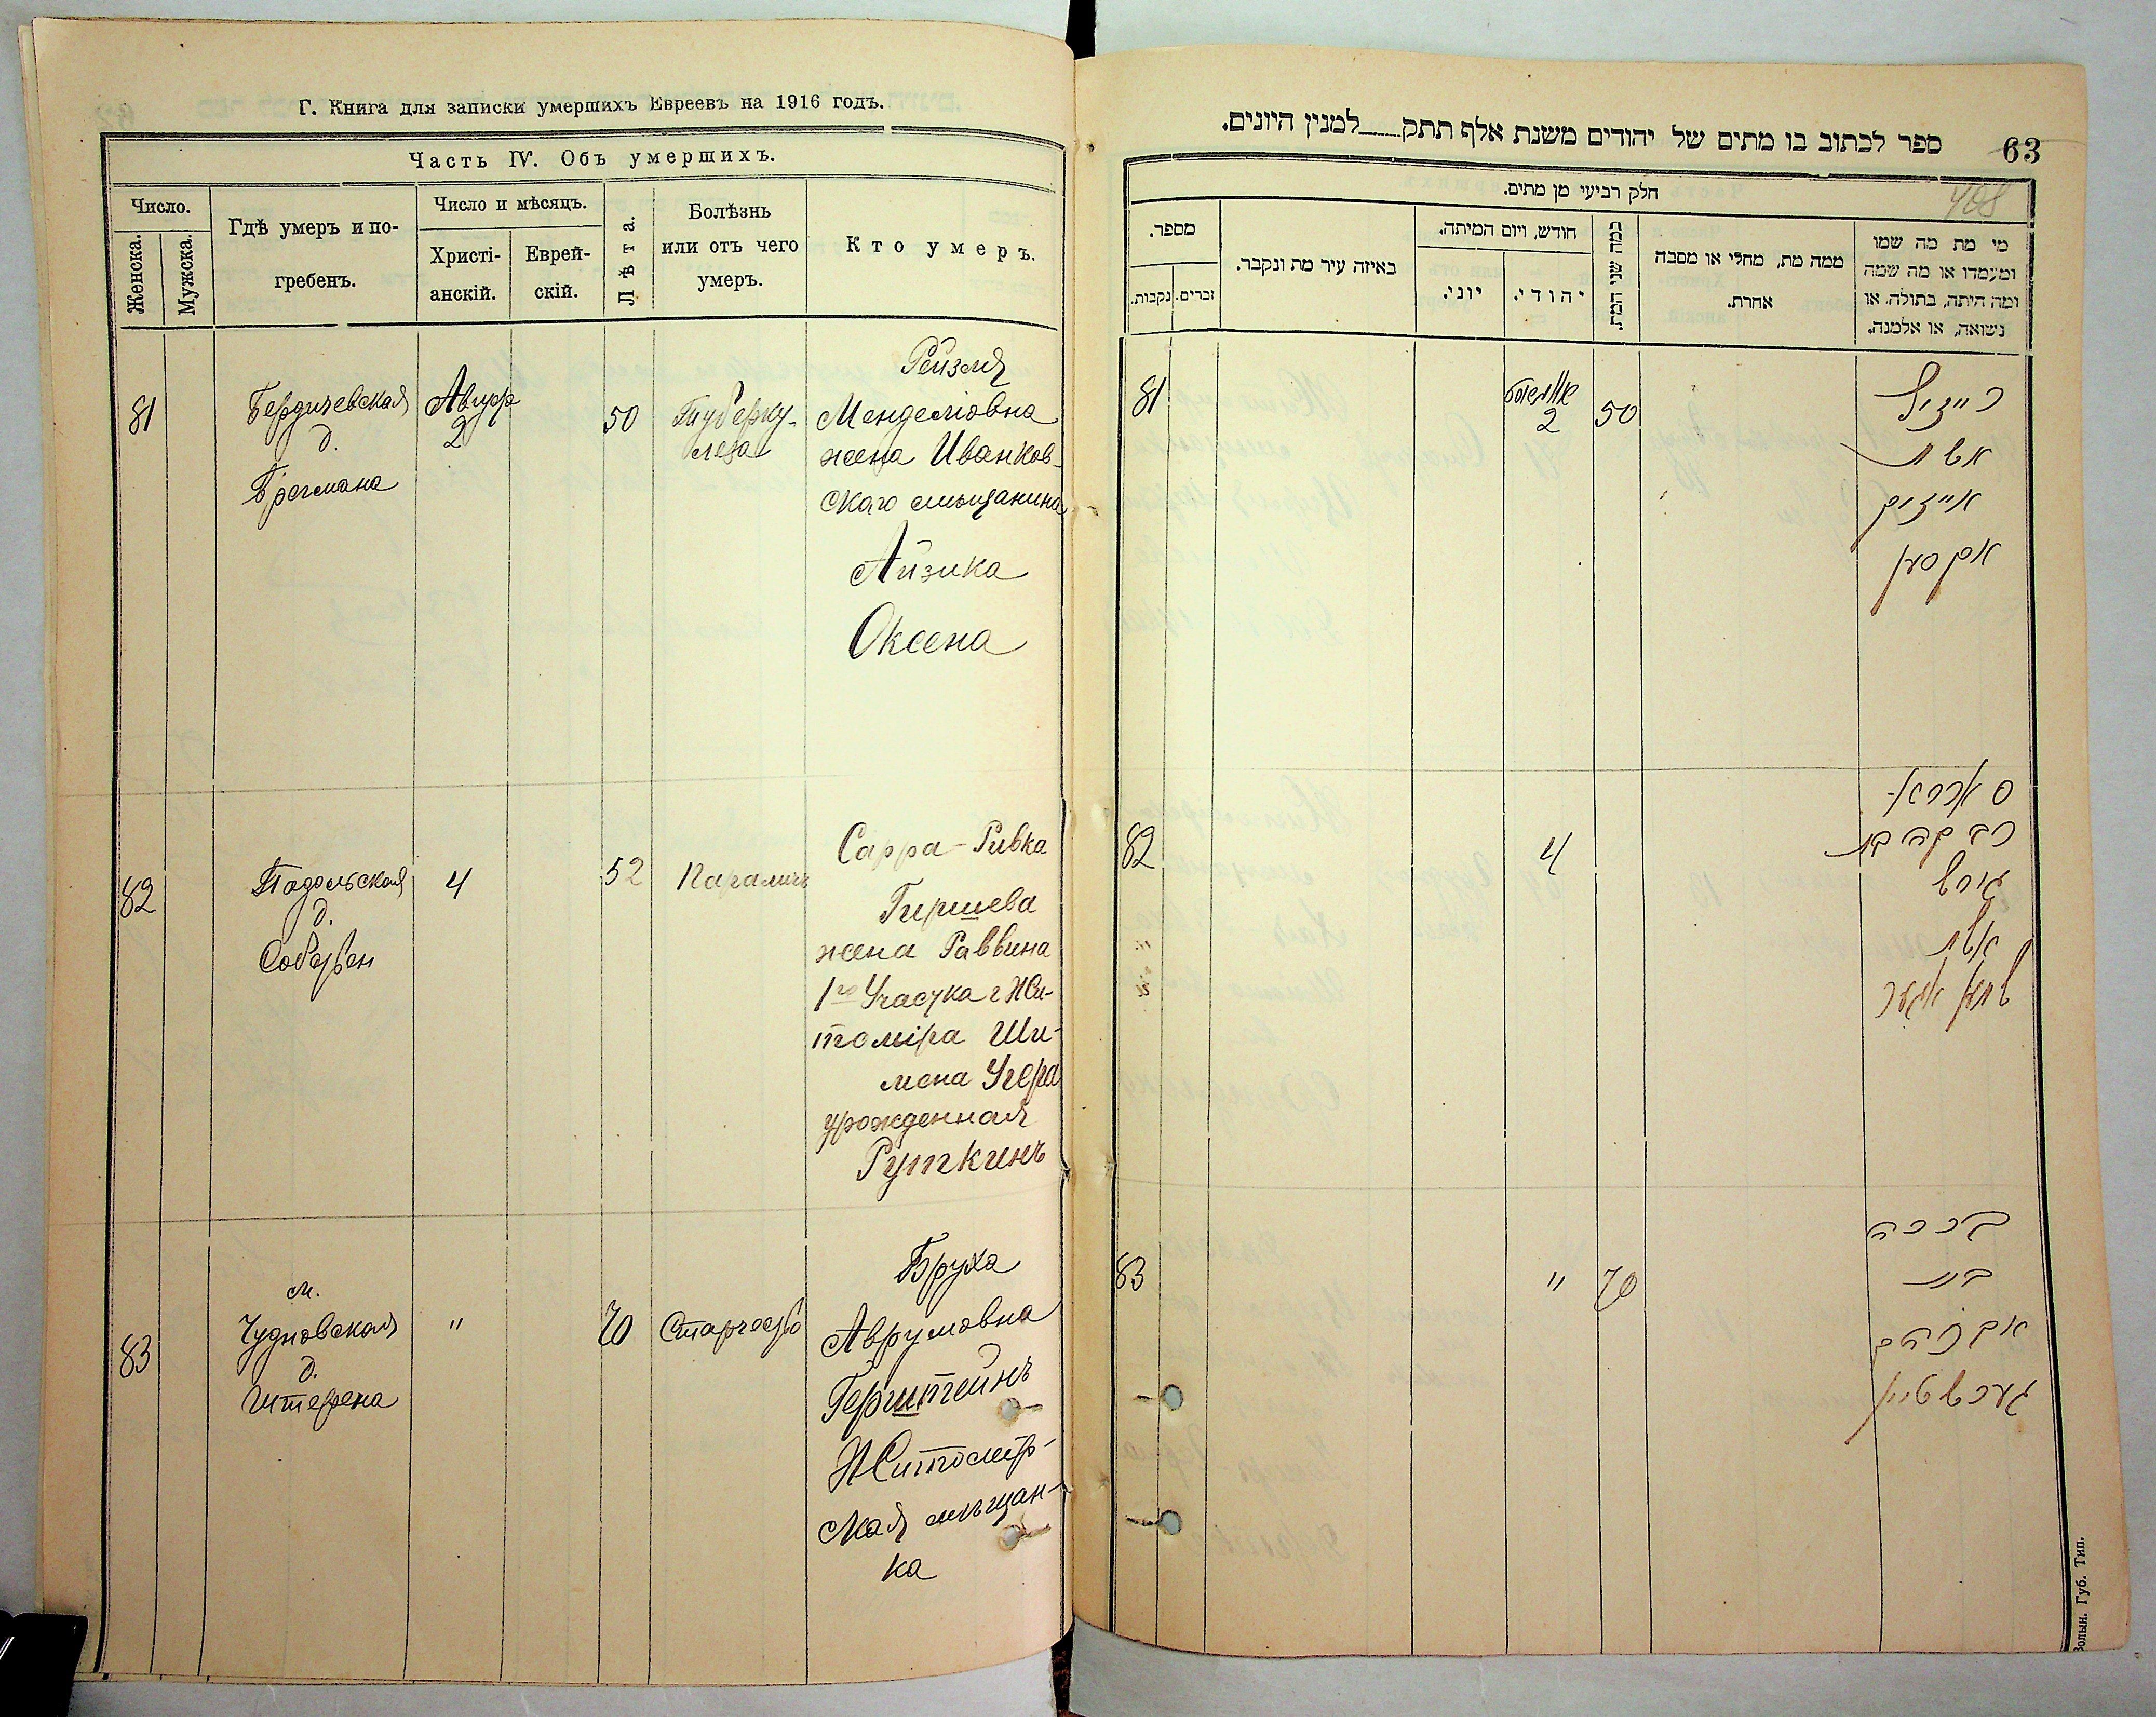 Г. Книга для записки умершихъ Евреевъ на 1916 годъ.
Часть IV. Объ умершихъ.
Число.
Женска.
Мужска.
Гдѣ умеръ и по-
гребенъ.
Число и мѣсяцъ.
Христі-
анскій.
Еврей-
скій.
Лѣта.
Болѣзнь
или отъ чего
умеръ.
Кто умеръ.
81
Бердичевская
д.
Брегмана
Август
2
50
Туберку-
леза
Рейзля
Менделіовна
жена Иванков-
скаго мѣщанина
Айзика
Оксена
82
Подольская
д.
4
52
Параличъ
Сарра-Ривка
Гиршева
жена Раввина
1го Участка г Жи-
томіра Ши-
мона Угера
урожденная
Руткинъ
83
м.
Чудновская
д.
Штерена
"
70
Старчество
Бруха
Аврумовна
Герштейнъ
Житомир-
ская мѣщан-
ка
ספר לכתוב בו מתים של יהודים משנת אלף תתק למנין היונים.
63
408
חלק רביעי מן מתים.
מספר.
נקבות.
זכרים.
באיזה עיר מת ונקבר.
חודש, ויום המיתה.
יוני.
יהודי.
כמה שני המת.
ממה מת, מחלי או מסבה
אחרת.
מי מת מה שמו
ומעמדו או מה שמה
ומה היתה, בתולה, או
נשואה, או אלמנה.
81
2
50
רייזיל
אשת
אייזיק
אקסען
82
4
רבקה בת
גירש
אשת
שימען אוגער
83
"
70
ברכה
בת
אברהם
גערשטיין
Волын. Губ. Тип.